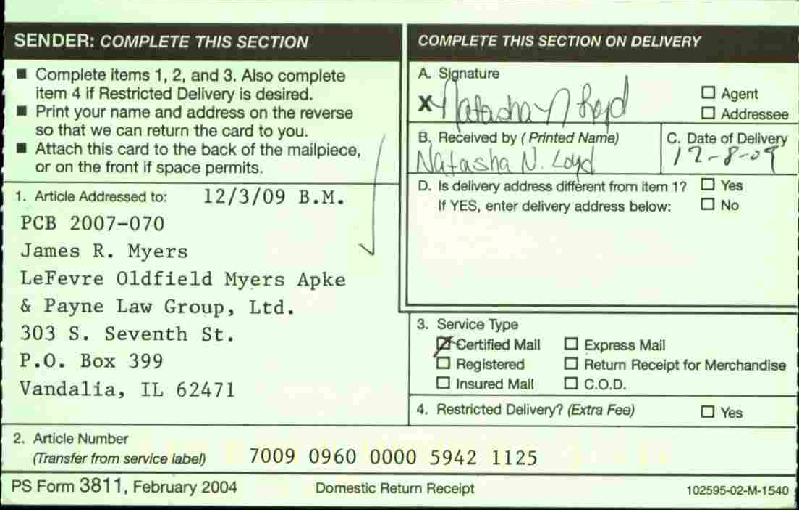 SENDER: COMPLETE THIS SECTION
■ Complete items 1, 2, and 3. Also complete
item 4 if Restricted Delivery is desired.
■ Print your name and address on the reverse
so that we can return the card to you.
■ Attach this card to the back of the mailpiece,
or on the front if space permits.
1. Article Addressed to: 12/3/09 B.M.
PCB 2007-070
James R. Myers
LeFevre Oldfield Myers Apke
& Payne Law Group, Ltd.
303 S. Seventh St.
P.O. Box 399
Vandalia, IL 62471
COMPLETE THIS SECTION ON DELIVERY
A. Signature
X Natasha N Loyd
☐ Agent
☐ Addressee
B. Received by (Printed Name)
Natasha N. Loyd
C. Date of Delivery
12-8-09
D. Is delivery address different from item 1? ☐ Yes
If YES, enter delivery address below: ☐ No
3. Service Type
☑ Certified Mail ☐ Express Mail
☐ Registered ☐ Return Receipt for Merchandise
☐ Insured Mail ☐ C.O.D.
4. Restricted Delivery? (Extra Fee) ☐ Yes
2. Article Number
(Transfer from service label) 7009 0960 0000 5942 1125
PS Form 3811, February 2004 Domestic Return Receipt 102595-02-M-1540